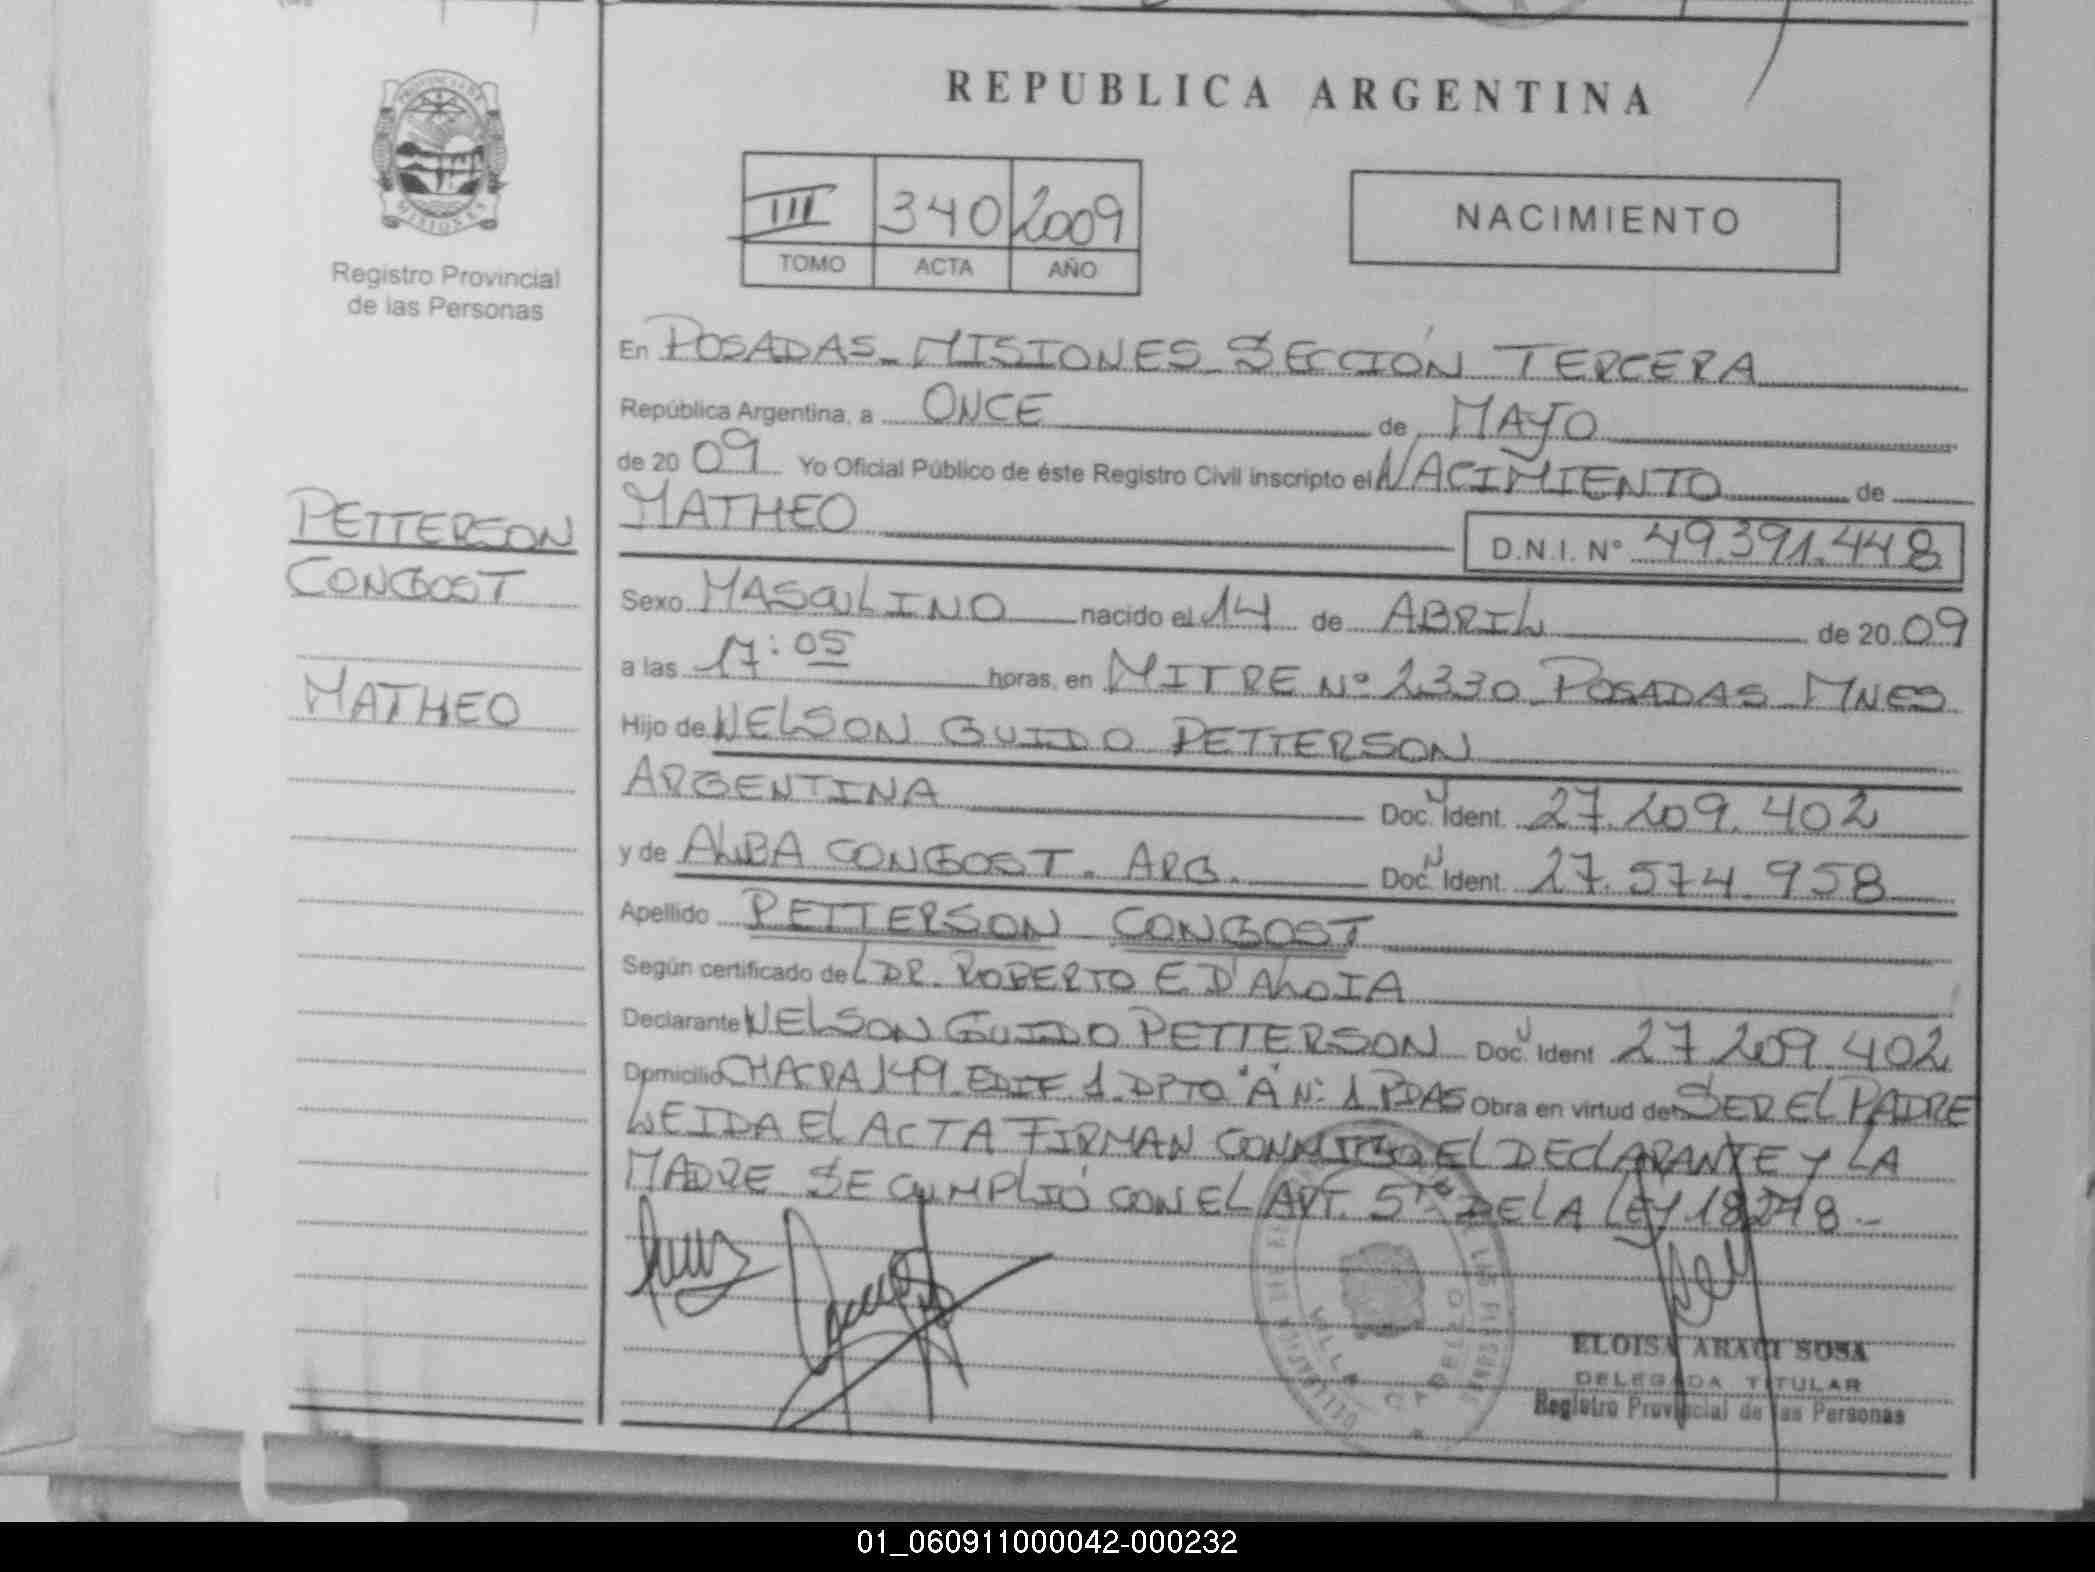 PROVINCIA DE
MISIONES
Registro Provincial
de las Personas
PETTERSON
CONGOST
MATHEO
REPUBLICA ARGENTINA
III 340 2009
TOMO ACTA AÑO
NACIMIENTO
En POSADAS - MISIONES - SECCIÓN TERCERA
República Argentina, a ONCE de MAYO
de 2009 Yo Oficial Público de éste Registro Civil inscripto el NACIMIENTO de
MATHEO D.N.I. N° 49.391.448
Sexo MASCULINO nacido el 14 de ABRIL de 2009
a las 17:05 horas, en MITRE N° 2330 - POSADAS - MNES
Hijo de NELSON GUIDO PETTERSON
ARGENTINA Doc. Ident. 27.209.402
y de ALBA CONGOST. ARG. Doc. Ident. 27.574.958
Apellido PETTERSON CONGOST
Según certificado del DR. ROBERTO E. D'ALOIA
Declarante NELSON GUIDO PETTERSON Doc. Ident 27 209 402
Domicilio CHACRA 149 EDIF 1 DPTO "A" N: 1 PDAS Obra en virtud de SER EL PADRE
LEIDA EL ACTA FIRMAN CONMIGO EL DECLARANTE Y LA
MADRE SE CUMPLIÓ CON EL ART. 5to DE LA LEY 18248 -
VILLA CABELLO
ELOISA ARACI SOSA
DELEGADA TITULAR
Registro Provincial de las Personas
01_060911000042-000232